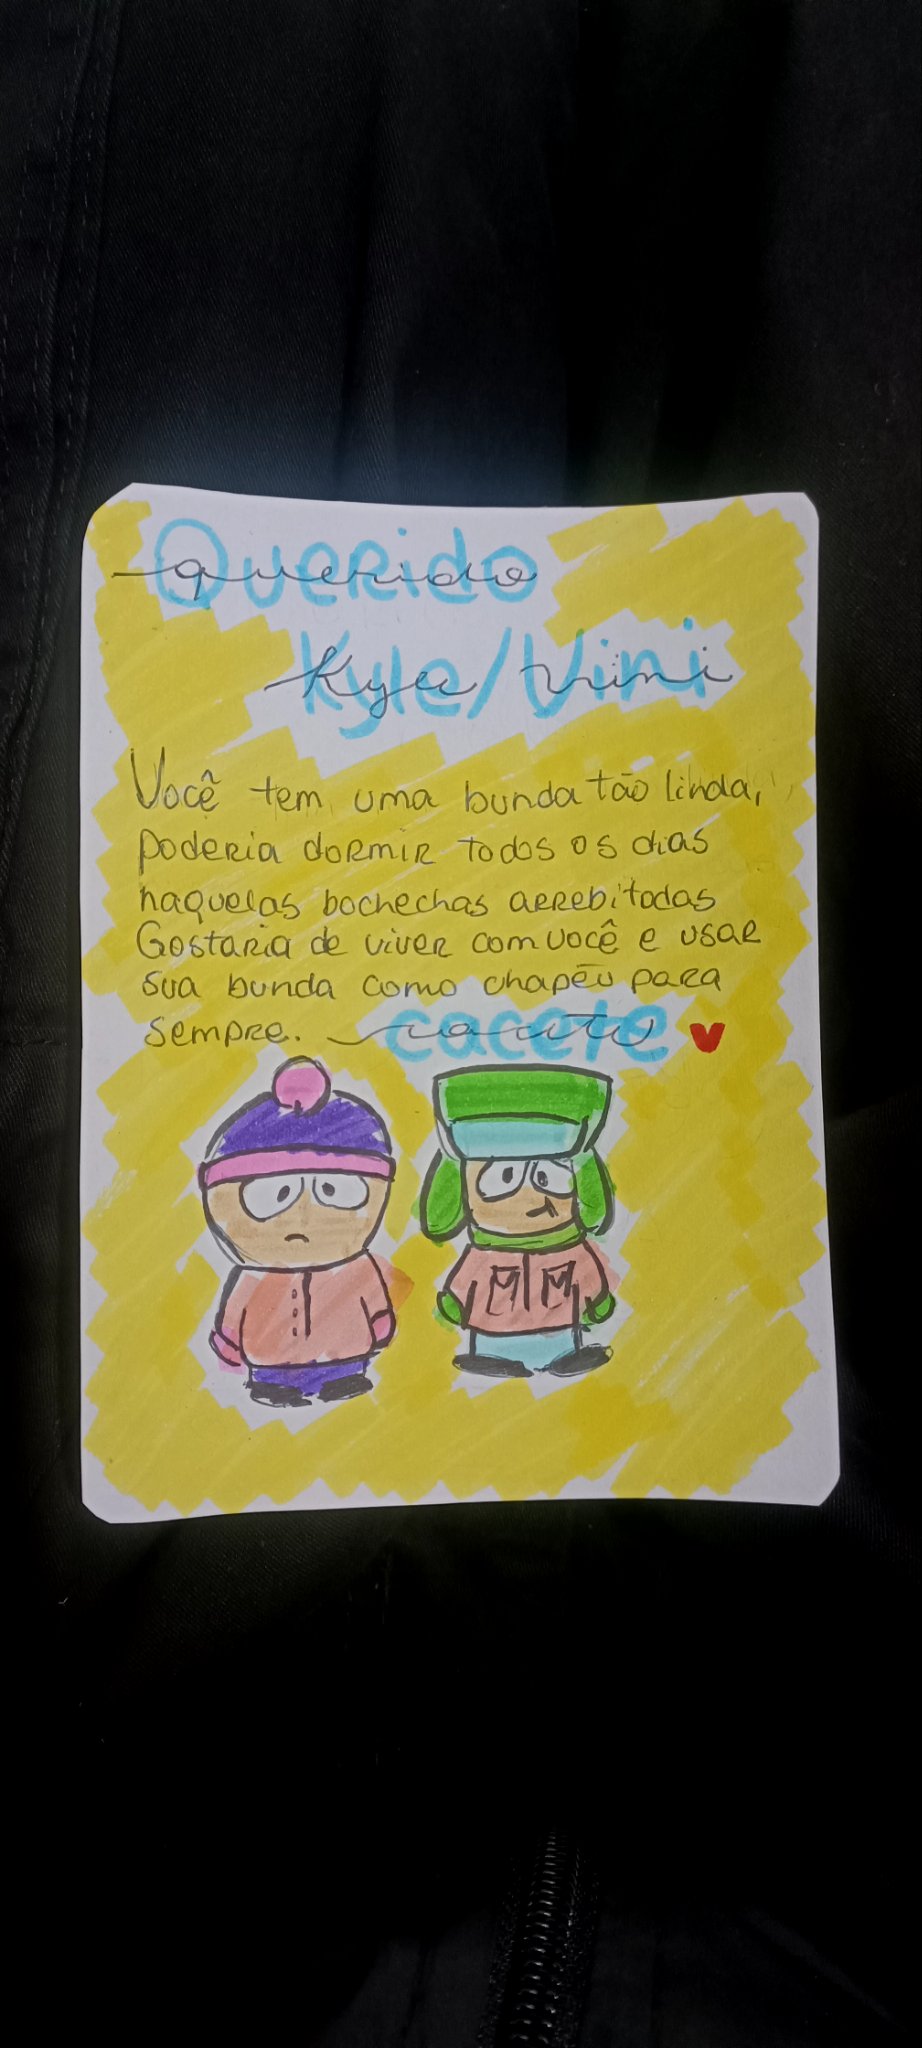 Querido
Kyle/Vini
Você tem uma bunda tão linda,
poderia dormir todos os dias
naquelas bochechas arrebitadas
Gostaria de viver com você e usar
sua bunda como chapéu para
sempre. cacete